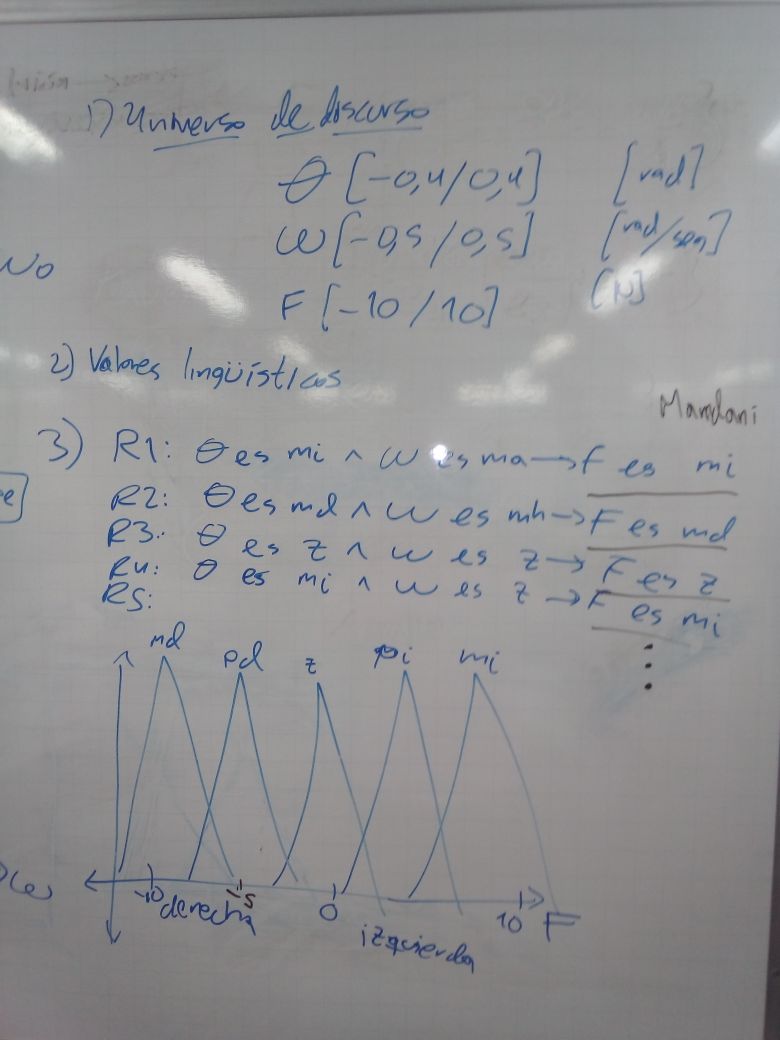 1) Universo de discurso
θ [-0,4/0,4] [rad]
ω [-0,5/0,5] [rad/seg]
No
F [-10/10] [N]
2) Valores lingüísticos
Mamdani
3) R1: θ es mi ∧ ω es ma → F es mi
R2: θ es md ∧ ω es mh → F es md
R3: θ es z ∧ ω es z → F es z
R4: θ es mi ∧ ω es z → F es mi
R5:
md pd z pi mi
-10 -5 0 10 F
derecha izquierda